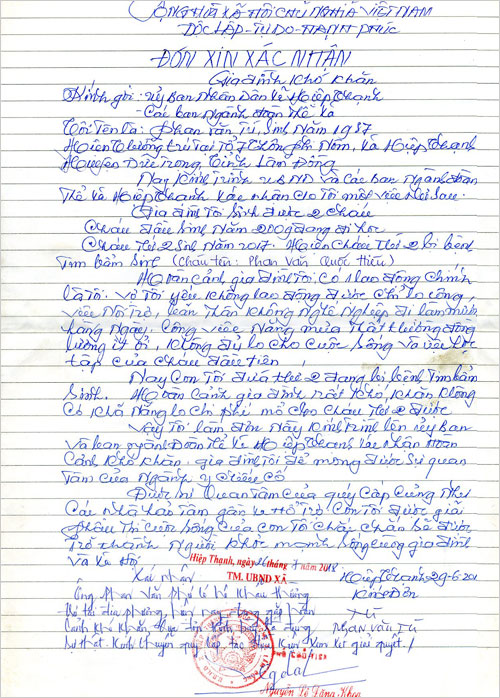 CỘNG HÒA XÃ HỘI CHỦ NGHĨA VIỆT NAM
ĐỘC LẬP - TỰ DO - HẠNH PHÚC
ĐƠN XIN XÁC NHẬN
Gia đình khó khăn
Kính gởi: Uỷ Ban Nhân Dân xã Hiệp Thạnh
- Các ban ngành đoàn thể xã
Tôi Tên là: Phan Văn Tú, sinh Năm 1987
Hiện Thường trú tại Tổ 7 thôn Phi Nôm, xã Hiệp Thạnh
Huyện Đức Trọng, Tỉnh Lâm Đồng
Nay Kính trình UBND và các Ban Ngành đoàn
Thể xã Hiệp Thạnh xác nhận cho Tôi một việc Như Sau:
Gia đình Tôi sinh được 2 cháu
Cháu đầu sinh Năm đang đi học
Cháu Thứ 2 sinh Năm 2017. Hiện Cháu Thứ 2 bị bệnh
Tim bẩm sinh (Cháu tên: Phan Văn Quốc Hiếu)
Hoàn cảnh gia đình Tôi có 1 lao động chính
là Tôi. Vợ Tôi yếu không lao động được chỉ lo công
việc Nội Trợ, bản Thân không Nghề Nghiệp đi làm mướn
hàng Ngày. Công việc Nắng mưa Thất thường đồng
lương ít ỏi, không đủ lo cho cuộc sống và việc học
tập của cháu đầu tiên.
Nay con Tôi đứa thứ 2 đang bị bệnh Tim bẩm
Sinh. Hoàn cảnh gia đình rất khó khăn không
Có khả Năng lo chi phí mổ cho cháu Thứ 2 được
Vậy Tôi làm đơn Này Kính Trình lên Uỷ ban
Và ban ngành Đoàn thể xã Hiệp Thạnh xác Nhận hoàn
Cảnh khó khăn, gia đình Tôi để mong được sự quan
Tâm của Ngành
Được sự Quan Tâm của quý Cấp Cũng Như
Các Nhà hảo Tâm gần xa Hỗ Trợ Con Tôi được giải
phẫu Thì cuộc sống của con Tôi chắc chắn sẽ được
Trở thành Người khỏe mạnh sống cùng gia đình
và xã hội
Hiệp Thạnh, ngày 26 tháng 7 năm 2018
Xác nhận
TM. UBND XÃ
Hiệp Thạnh 29-6-201
Kính Đơn
Ông Phan Văn
Tú
Phan Văn Tú
Nguyễn Khoa